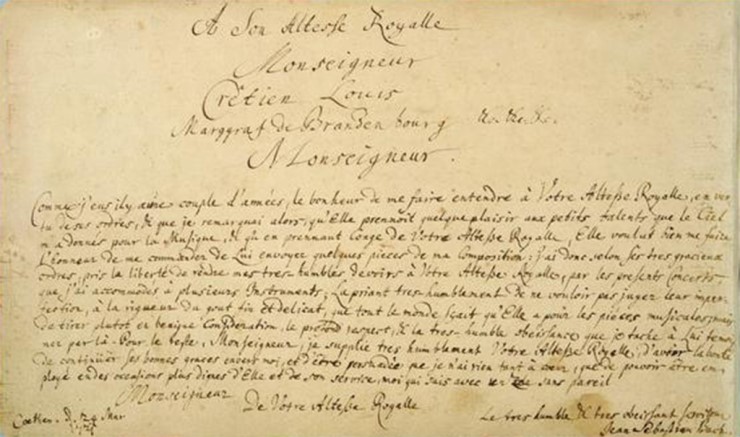 A Son Altesse Royalle
Monseigneur
Crétien Louis
Marggraf de Brandenbourg &c. &c. &c.
Monseigneur.
Comme j'eus il y a une couple d'années, le bonheur de me faire entendre à Votre Altesse Royalle, en ver
tu de ses ordres, & que je remarquai alors, qu'Elle prennoit quelque plaisir aux petits talents que le Ciel
m'a donnés pour la Musique, & qu'en prennant Conge de Votre Altesse Royalle, Elle voulut bien me faire
l'honneur de me commander de Lui envoyer quelques pieces de ma Composition: j'ai donc selon ses tres gracieux
ordres, pris la liberté de rendre mes tres-humbles devoirs à Votre Altesse Royalle, par les presents Concerts,
que j'ai accommodés à plusieurs Instruments; La priant tres-humblement de ne vouloir pas juger leur imper-
fection, à la rigueur du gout fin et delicat, que tout le monde sçait qu'Elle a pour les piéces musicales; mais
de tirer plutot en benigne Consideration, le profond respect, & la tres-humble obeissance que je tache à Lui temoi
ner par là. Pour le reste, Monseigneur, je supplie tres humblement Votre Altesse Royalle, d'avoir la bonté
de continüer ses bonnes graces envers moi, et d'être persuadée que je n'ai rien tant à cœur, que de pouvoir être em-
ployé en des occasions plus dignes d'Elle et de son service, moi qui suis avec un zele sans pareil
Monseigneur
De Votre Altesse Royalle
Coethen. d. 24 Mar
1721
Le tres humble & tres obeissant serviteur
Jean Sebastien Bach.